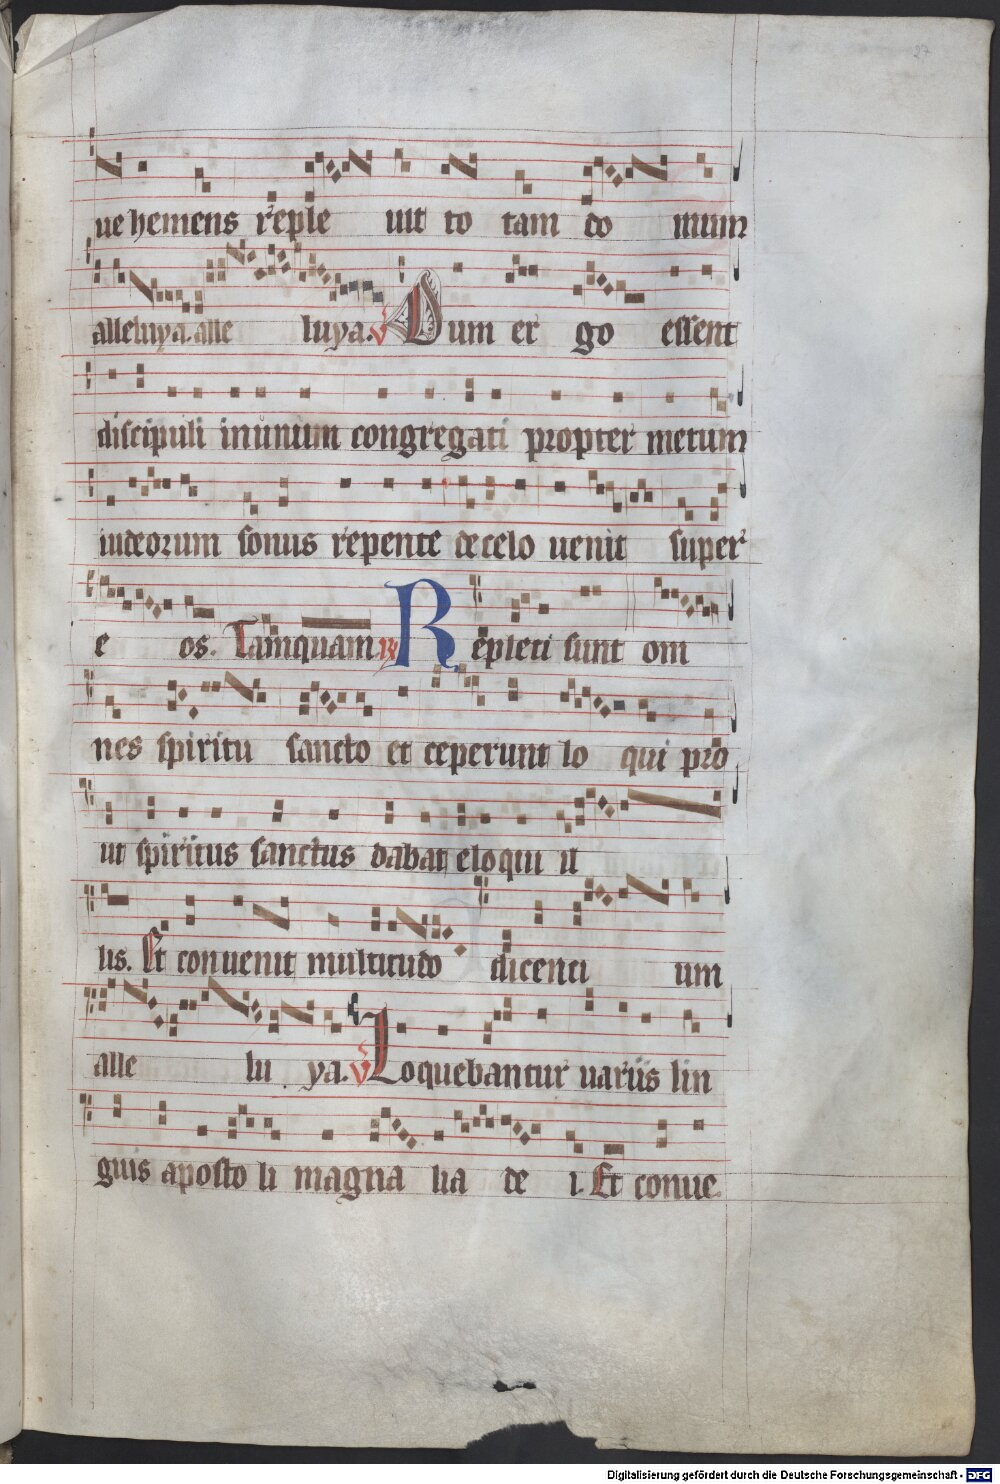 27
uehemens reple uit to tam do mum
alleluya. alle luya. v Dum er go essent
discipuli inunum congregati propter metum
iudeorum sonus repente decelo uenit super
e os. Tamquam R Repleti sunt om
nes spiritu sancto et ceperunt lo qui pro
ut spiritus sanctus dabat eloqui il
lis. Et conuenit multitudo dicenti um
alle lu ya. v Loquebantur uariis lin
guis aposto li magna lia de i. Et conue.
Digitalisierung gefördert durch die Deutsche Forschungsgemeinschaft - DFG